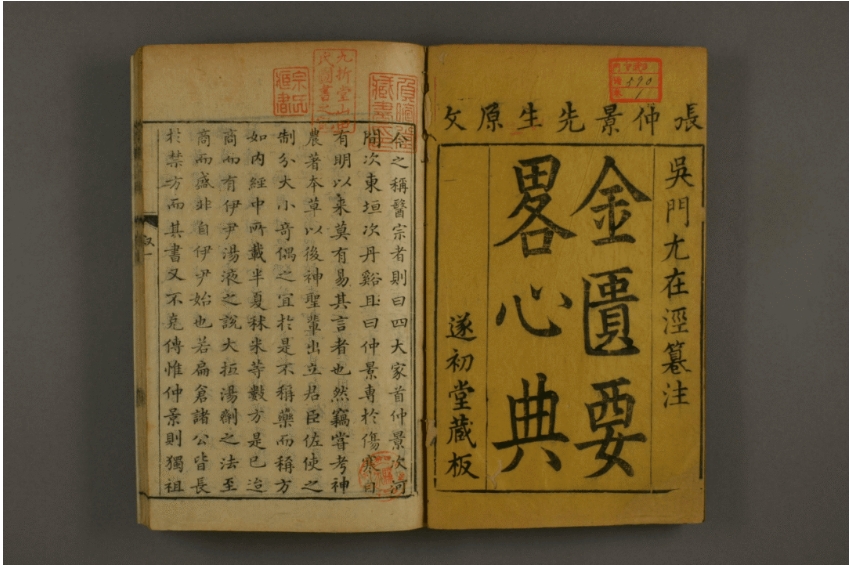 張仲景先生原文
吳門尤在涇纂注
金匱要
畧心典
遂初堂藏板
590
1
九折堂山田
氏圖書之記
今之稱醫宗者則曰四大家首仲景次河
間次東垣次丹谿且曰仲景專於傷寒自
有明以來莫有易其言者也然竊嘗考神
農著本草以後神聖輩出立君臣佐使之
制分大小奇偶之宜於是不稱藥而稱方
如内經中所載半夏秫米等數方是已迨
商而有伊尹湯液之說大抵湯劑之法至
商而盛非自伊尹始也若扁倉諸公皆長
於禁方而其書又不克傳惟仲景則獨祖
叙一